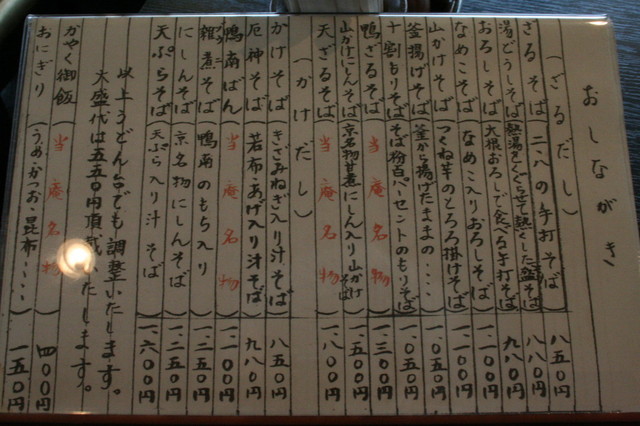 おしながき
（ざるだし）
ざるそば 二・八の手打そば 八五〇円
湯どうしそば 熱湯をくぐらせて熱くした盛そば 八八〇円
おろしそば 大根おろしで食べる手打そば 九八〇円
なめこそば なめこ入りおろしそば 一、一〇〇円
山かけそば つくね芋のとろろ掛けそば 一、〇五〇円
釜揚げそば 釜から揚げたままの・・・・ 一、〇五〇円
十割もりそば そば粉百パーセントのもりそば
鴨ざるそば 当庵名物 一、三〇〇円
山かけにしんそば 京名物甘煮にしん入り山かけそば 一、五〇〇円
天ざるそば 当庵名物 一、八〇〇円
（かけだし）
かけそば きざみねぎ入り汁そば 八五〇円
厄神そば 若布・あげ入り汁そば 九八〇円
鴨南ばん 当庵名物 一、一〇〇円
雑煮そば 鴨南のもち入り 一、二五〇円
にしんそば 京名物にしんそば 一、二五〇円
天ぷらそば 天ぷら入り汁そば 一、六〇〇円
以上うどん台でも調整いたします。
大盛代は五五〇円頂戴いたします。
かやく御飯 当庵名物 四〇〇円
おにぎり（うめ・かつお・昆布・・・・） 一五〇円